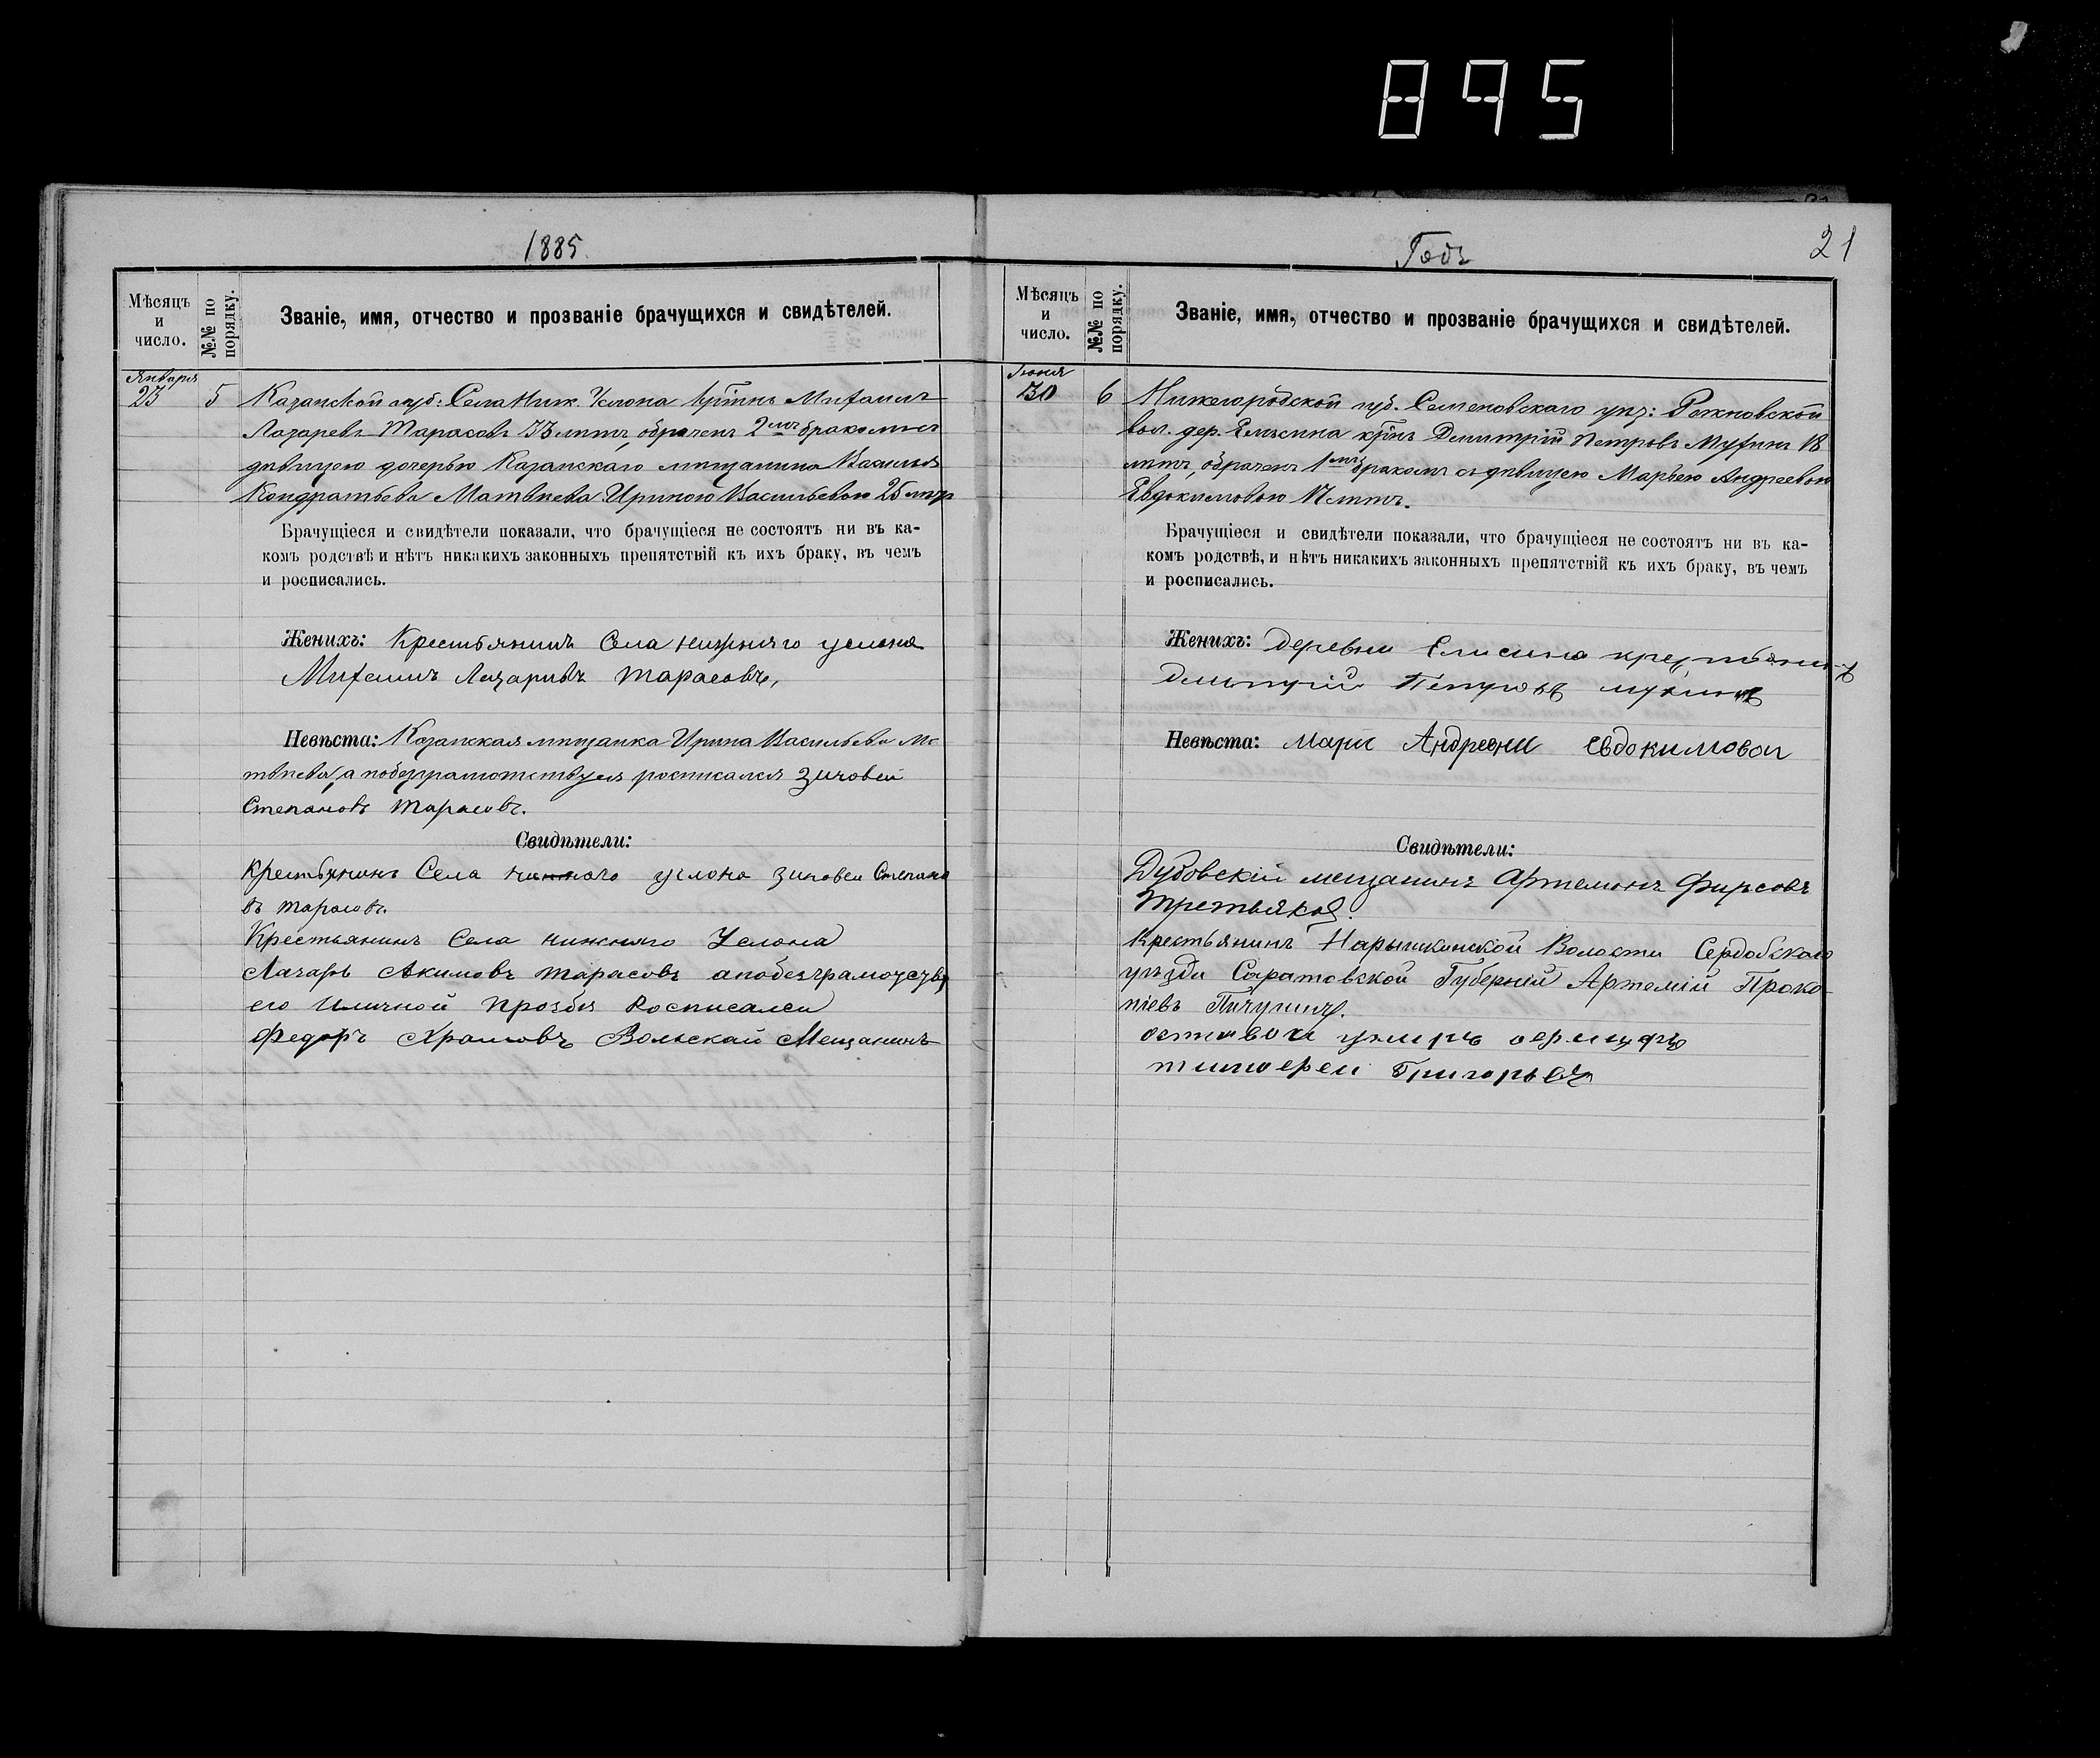 895
1885
Мѣсяцъ и число.
№№ по порядку.
Званіе, имя, отчество и прозваніе брачущихся и свидѣтелей.
Января
23 5 Казанской губ: Села Ниж. Услона крт̃нъ Михаилъ
Лазаревъ Тарасовъ 33 лѣтъ, обрачен 2мъ бракомъ съ
дѣвицею дочерью Казанскаго мѣщанина Василья
Кондратьева Матвѣева Ириною Васильевою 25 лѣтъ
Брачущіеся и свидѣтели показали, что брачущіеся не состоятъ ни въ ка-
комъ родствѣ и нѣтъ никакихъ законныхъ препятствій къ ихъ браку, въ чемъ
и росписались.
Женихъ: Крестьянинъ Села нижняго услона
Михаилъ Лазаривъ Тарасовъ,
Невѣста: Казанская мѣщанка Ирина Васильева Ма
твѣева, а побезграмотству ея росписался Зиновей
Степановъ Тарасовъ.
Свидѣтели:
Крестьянинъ Села услона Зиновеи Степано
въ Тарасовъ.
Крестьянинъ Села нижняго Услона
Лазарь Акимовъ Тарасовъ апобезграмотству
его Иличной прозбя Росписался
Федоръ Храмовъ Вольскай Мещанинъ
Годъ
21
Мѣсяцъ и число.
№№ по порядку.
Званіе, имя, отчество и прозваніе брачущихся и свидѣтелей.
Іюня
30 6 Нижегородской губ. Семеновскаго уѣз: Рожновской
вол. дер. Елисина кр̃нъ Димитрій Петровъ Мухинъ 18
лѣтъ, обрачен 1мъ бракомъ съ дѣвицею Марьею Андреевою
Евдокимовою 17 лѣтъ.
Брачущіеся и свидѣтели показали, что брачущіеся не состоятъ ни въ ка-
комъ родствѣ, и нѣтъ никакихъ законныхъ препятствій къ ихъ браку, въ чемъ
и росписались.
Женихъ: Деревни Елисина крестьянинъ
Дмитрій Петровъ мухинъ
Невѣста: Маріе Андреени Евдокимовои
Свидѣтели:
Дубовскій мещанинъ Артемонъ Фирсовъ
Третьяков.
Крестьянинъ Нарышкинской Волости Сердобскаго
уѣзда Саратовской Губерніи Артемій Проко
піевъ Пичугинъ.
унтиръ
тимоереи Григорьевъ